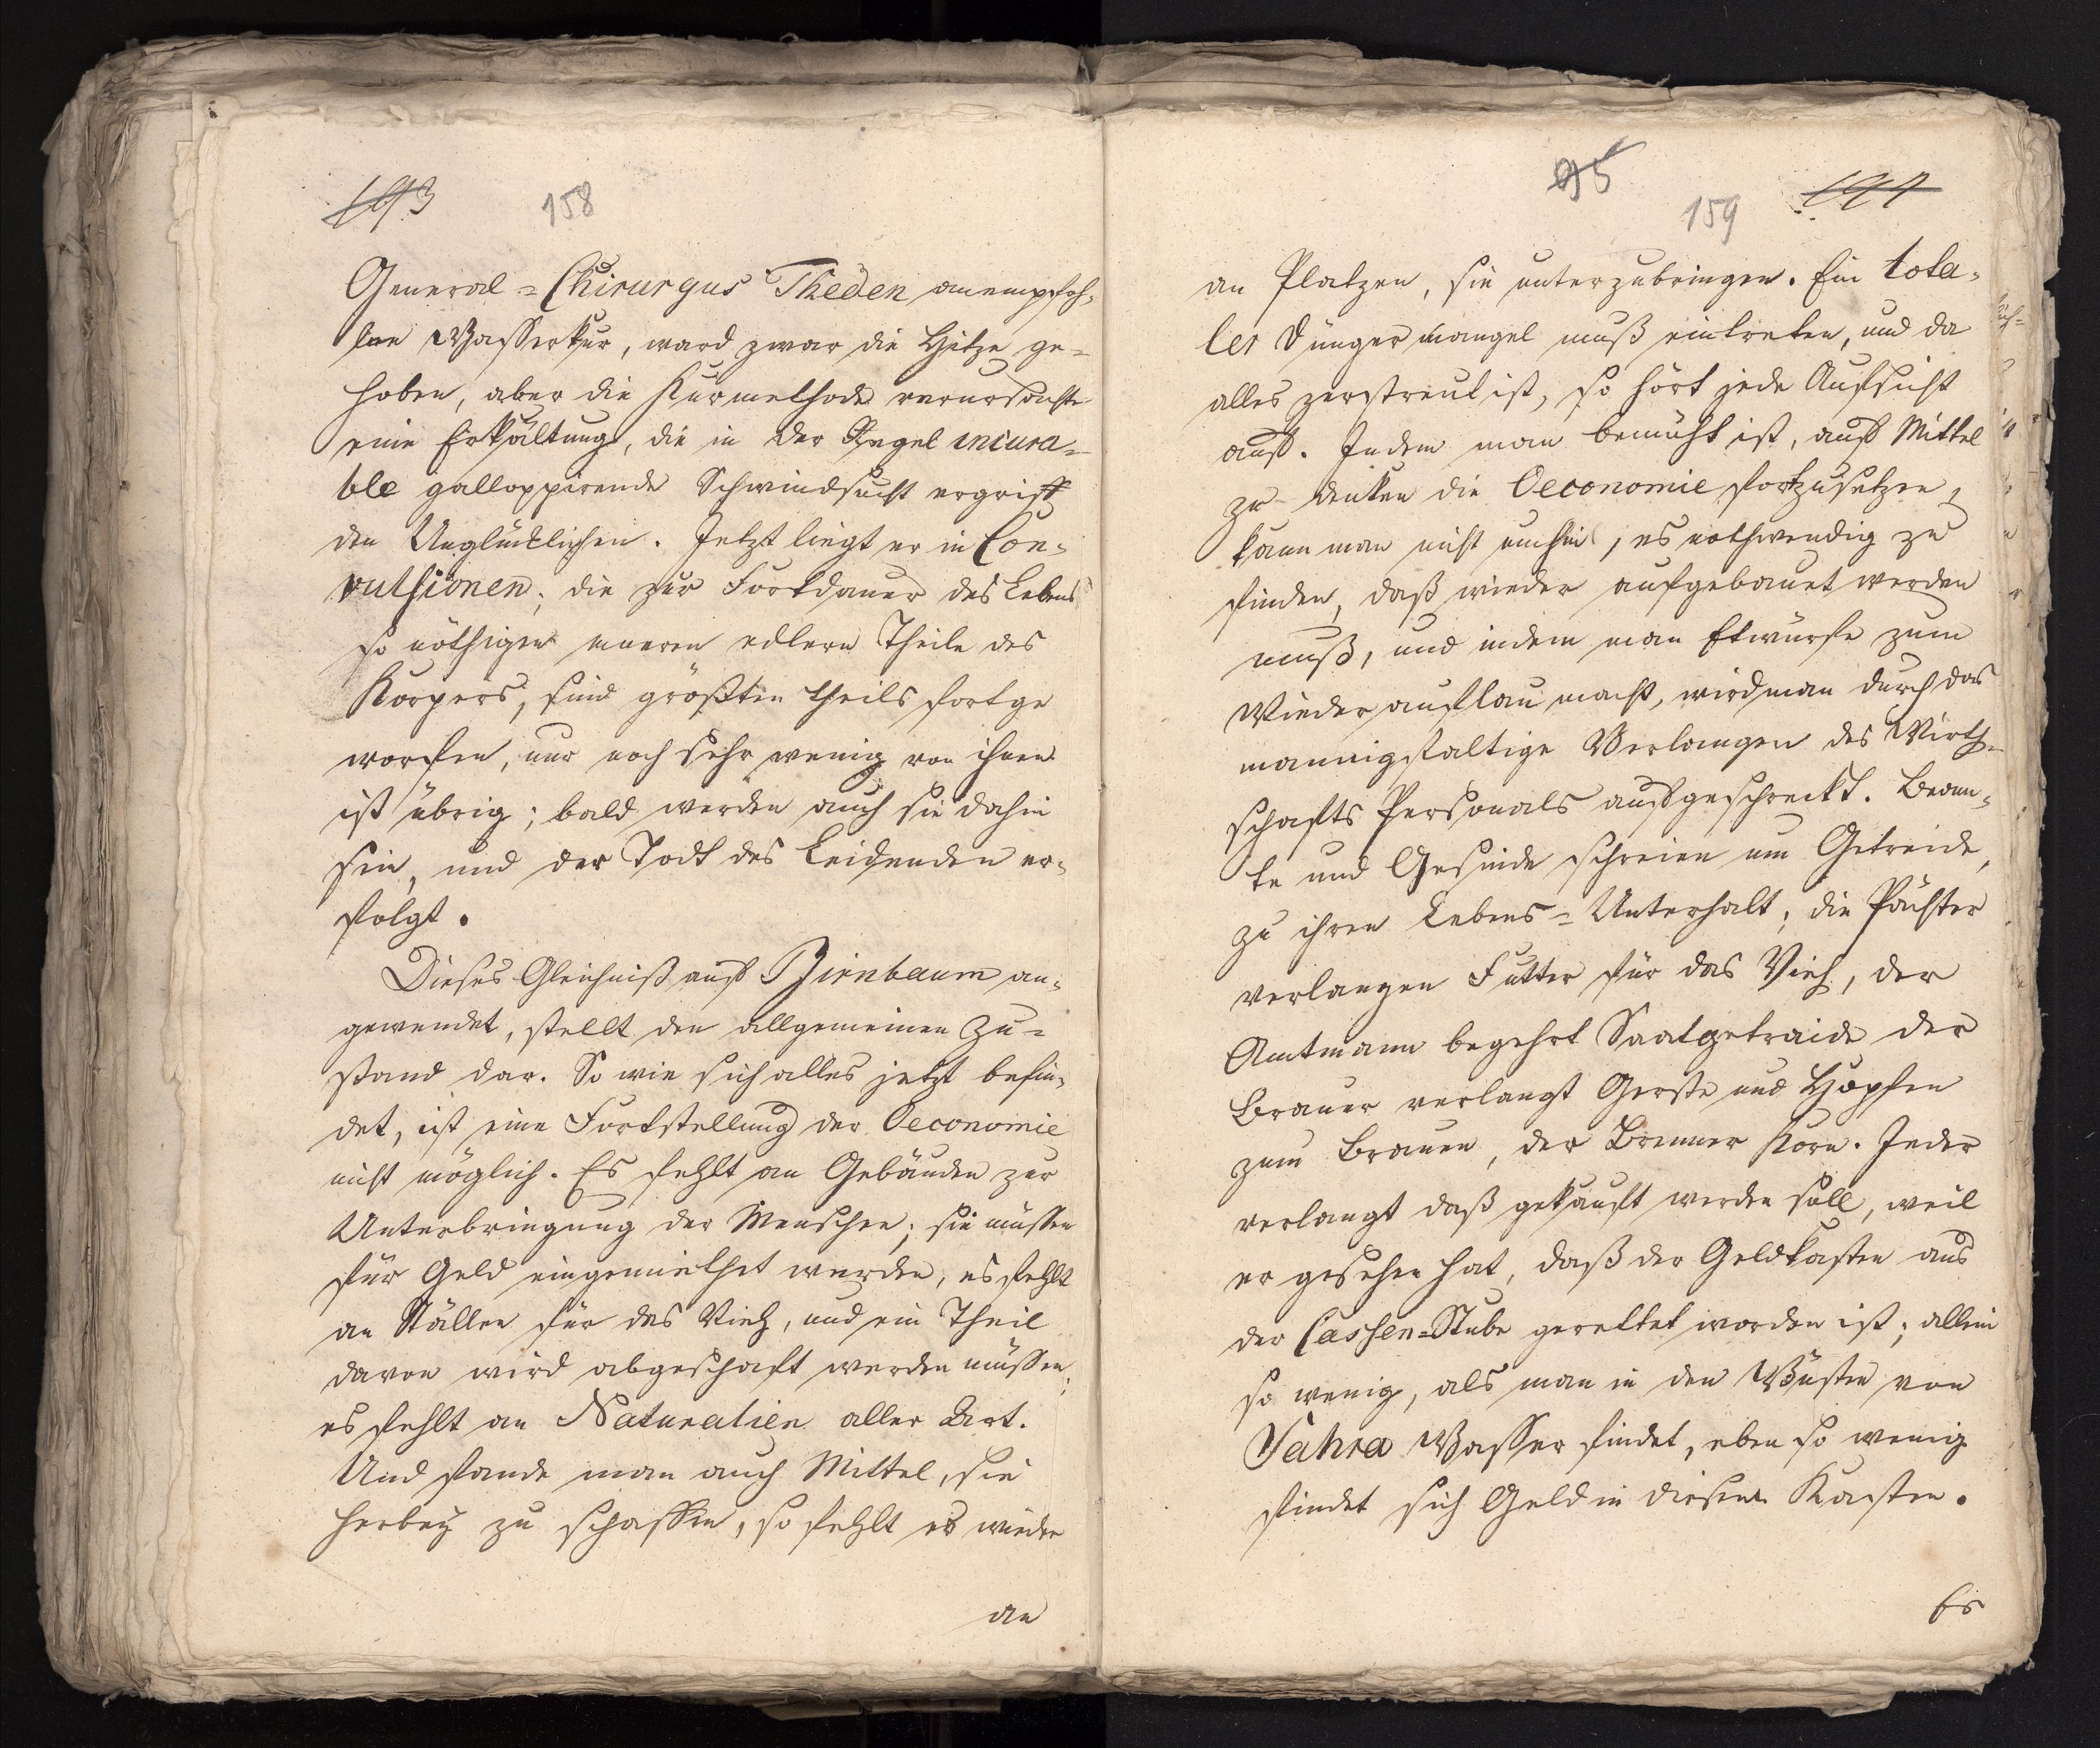 193 158
General-Chirurgus Theden anempfoh-
lne Wasserkur, ward zwar die Hitze ge-
hoben, aber die Kurmethode verursachte
eine Erkältung, die in der Regel incura-
ble galloppirende Schwindsucht ergriff
den Unglücklichen. Jetzt liegt er in Con-
vulsionen; die zur Fortdauer des Lebens
so nöthigen inneren edlern Theile des
Körpers, sind größten theils fortge
worfen, nur noch sehr wenig von ihnen
ist übrig; bald werden auch sie dahin
sein, und der Todt des Leidenden er-
folgt.
Dieses Gleichniß auf Birnbaum an-
gewendet, stellt den allgemeinen Zu-
stand dar. So wie sich alles jetzt befin-
det, ist eine Fortstellung der Oeconomie
nicht möglich. Es fehlt an Gebäuden zur
Unterbringung der Menschen; sie müssen
für Geld eingemiethet werden, es fehlt
an Ställen für das Vieh, und ein Theil
davon wird abgeschaft werden müssen;
es fehlt an Naturalien aller Art.
Und fände man auch Mittel, sie
herbey zu schaffen, so fehlt es wieder
an
95 159 194
an Platzen, sie unterzubringen. Ein tota-
ler Düngermangel muß eintreten, und da
alles zerstreut ist, so hört jede Aufsicht
auf. Indem man bemüht ist, auf Mittel
zu denken die Oeconomie fortzusetzen,
kann man nicht umhin, es nothwendig zu
finden, daß wieder aufgebauet werden
muß, und indem man Etwürfe zum
Wiederaufbau macht, wird man durch das
mannigfaltige Verlangen des Wirth-
schafts Personals aufgeschreckt. Beam-
te und Gesinde schreien um Getreide,
zu ihren Lebens-Unterhalt; die Pächter
verlangen Futter für das Vieh, der
Amtmann begehrt Saatgetraide der
Brauer verlangt Gerste und Hopfen
zum Brauen, der Brenner Korn. Jeder
verlangt daß gekauft werden soll, weil
er gesehen hat, daß der Geldkasten aus
der Cassen-Stube gerettet worden ist; allein
so wenig, als man in den Wüsten von
Sahra Wasser findet, eben so wenig
findet sich Geld in diesem Kasten.
Es